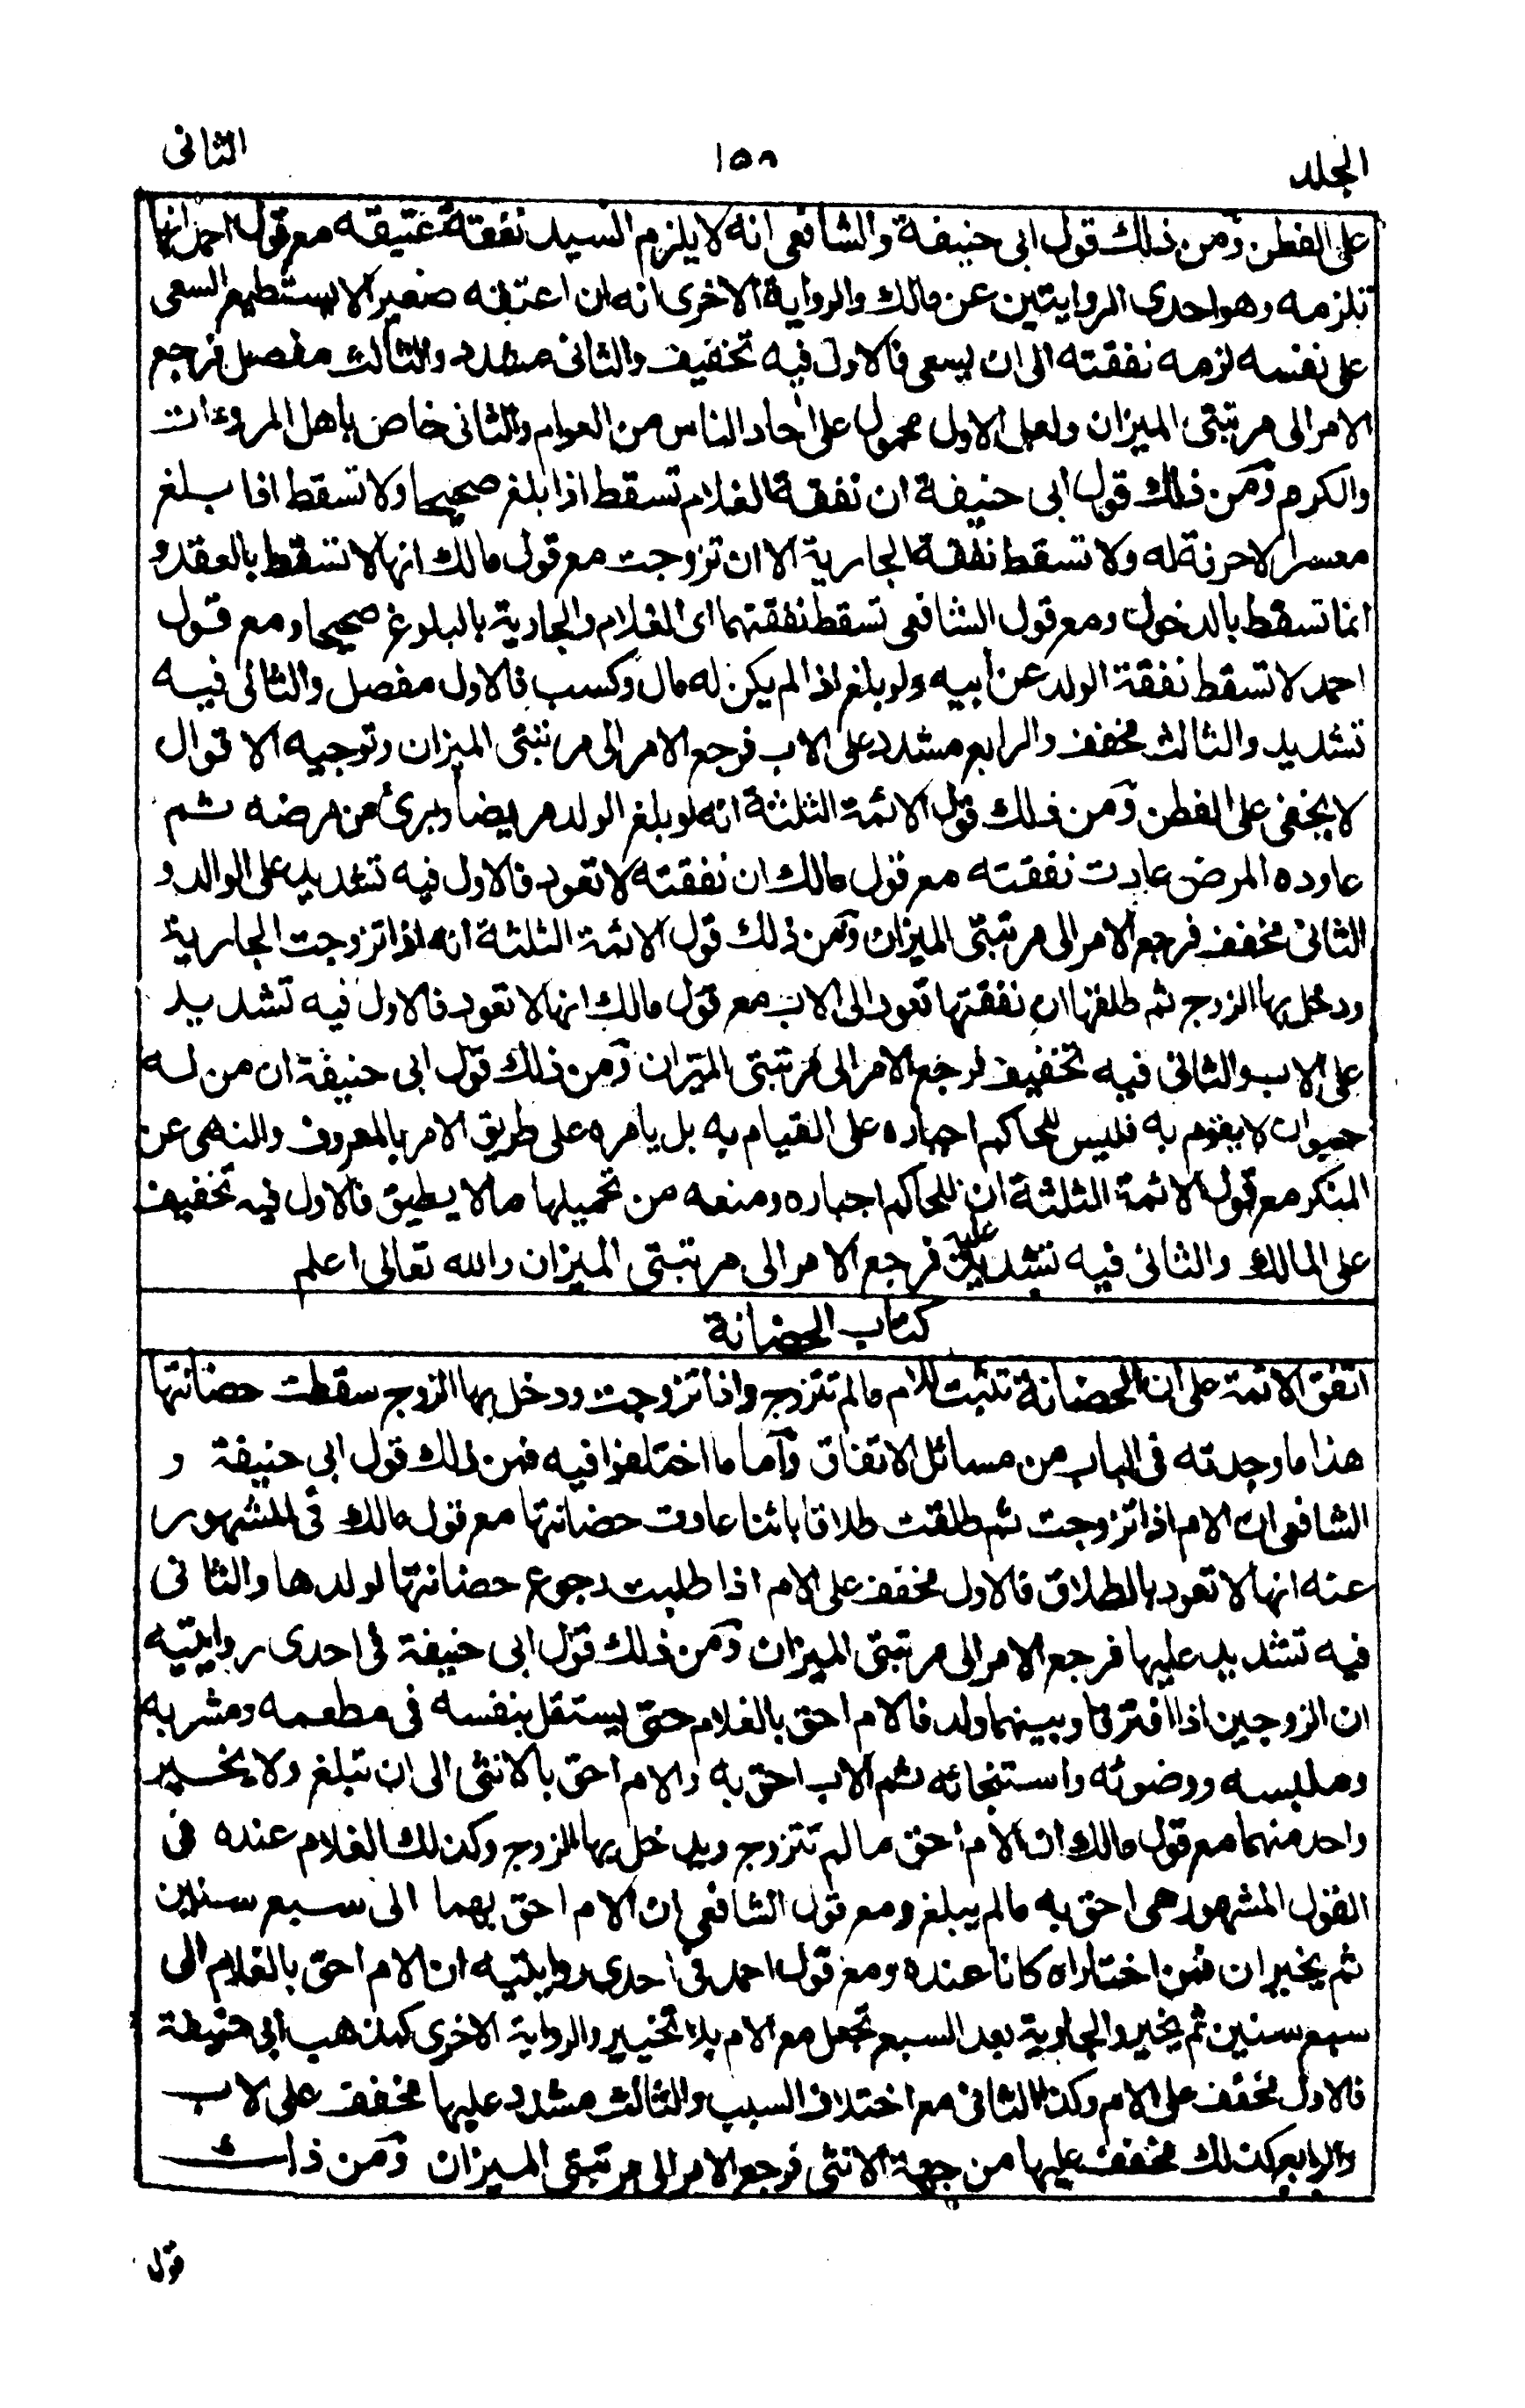 الجلد ١٥٨ الثانى
على الفطن ومن ذلك قول ابى حنيفة والشافعى انه لا يلزم السيد نفقة عتيقه مع قول احمد انها
تلزمه وهو احدى الروايتين عن مالك والرواية الاخرى انه ان اعتقه صغيرا لا يستطيع السعى
على نفسه لزمه نفقته الى ان يسعى فالاول فيه تخفيف والثانى مشدد والثالث مفصل فرجع
الامر الى مرتبتى الميزان ولعل الاول محمول على احاد الناس من العوام والثانى خاص باهل المروءات
والكرم ومن ذلك قول ابى حنيفة ان نفقة الغلام تسقط اذا بلغ صحيحا ولا تسقط اذا بلغ
معسرا لا حرفة له ولا تسقط نفقة الجارية الا ان تزوجت مع قول مالك انها لا تسقط بالعقد و
انما تسقط بالدخول ومع قول الشافعى تسقط نفقتهما اى الغلام والجارية بالبلوغ صحيحا ومع قول
احمد لا تسقط نفقة الولد عن أبيه ولو بلغ اذا لم يكن له مال وكسب فالاول مفصل والثانى فيه
تشديد والثالث مخفف والرابع مشدد على الاب فرجع الامر الى مرتبتى الميزان وتوجيه الاقوال
لا يخفى على الفطن ومن ذلك قول الائمة الثلثة انه لو بلغ الولد مريضا وبرئ من مرضه ثم
عاوده المرض عادت نفقته مع قول مالك ان نفقته لا تعود فالاول فيه تشديد على الوالد و
الثانى مخفف فرجع الامر الى مرتبتى الميزان ومن ذلك قول الائمة الثلثة انه اذا تزوجت الجارية
ودخل بها الزوج ثم طلقها ان نفقتها تعود الى الاب مع قول مالك انها لا تعود فالاول فيه تشديد
على الاب والثانى فيه تخفيف فرجع الامر الى مرتبتى الميزان ومن ذلك قول ابى حنيفة ان من له
حيوان لا يقوم به فليس للحاكم اجباره على القيام به بل يامره على طريق الامر بالمعروف والنهى عن
المنكر مع قول الائمة الثلثة ان للحاكم اجباره ومنعه من تحميلها ما لا يطيق فالاول فيه تخفيف
على المالك والثانى فيه تشديد عليه فرجع الامر الى مرتبتى الميزان والله تعالى اعلم
كتاب الحضانة
اتفق الائمة على ان الحضانة تثبت للام ما لم تتزوج واذا تزوجت ودخل بها الزوج سقطت حضانتها
هذا ما وجدته فى الباب من مسائل الاتفاق وأما ما اختلفوا فيه فمن ذلك قول ابى حنيفة و
الشافعى ان الام اذا تزوجت ثم طلقت طلاقا بائنا عادت حضانتها مع قول مالك فى المشهور
عنه انها لا تعود بالطلاق فالاول مخفف على الام اذا طلبت رجوع حضانتها لولدها والثانى
فيه تشديد عليها فرجع الامر الى مرتبتى الميزان ومن ذلك قول ابى حنيفة فى احدى روايتيه
ان الزوجين اذا افترقا وبينهما ولد فالام احق بالغلام حتى يستقل بنفسه فى مطعمه ومشربه
وملبسه ووضوئه واستنجائه ثم الاب احق به والام احق بالانثى الى ان تبلغ ولا يخير
واحد منهما مع قول مالك ان الام احق ما لم تتزوج ويدخل بها الزوج وكذلك الغلام عنده فى
القول المشهور هى احق به ما لم يبلغ ومع قول الشافعى ان الام احق بهما الى سبع سنين
ثم يخيران فمن اختاراه كانا عنده ومع قول احمد فى احدى روايتيه ان الام احق بالغلام الى
سبع سنين ثم يخير والجارية بعد السبع تجعل مع الام بلا تخيير والرواية الاخرى كمذهب ابى حنيفة
فالاول مخفف على الام وكذا الثانى مع اختلاف السبب والثالث مشدد عليها مخفف على لاب
والرابع كذلك مخفف عليها من جهة الانثى فرجع الامر الى مرتبتى الميزان ومن ذلك
قول